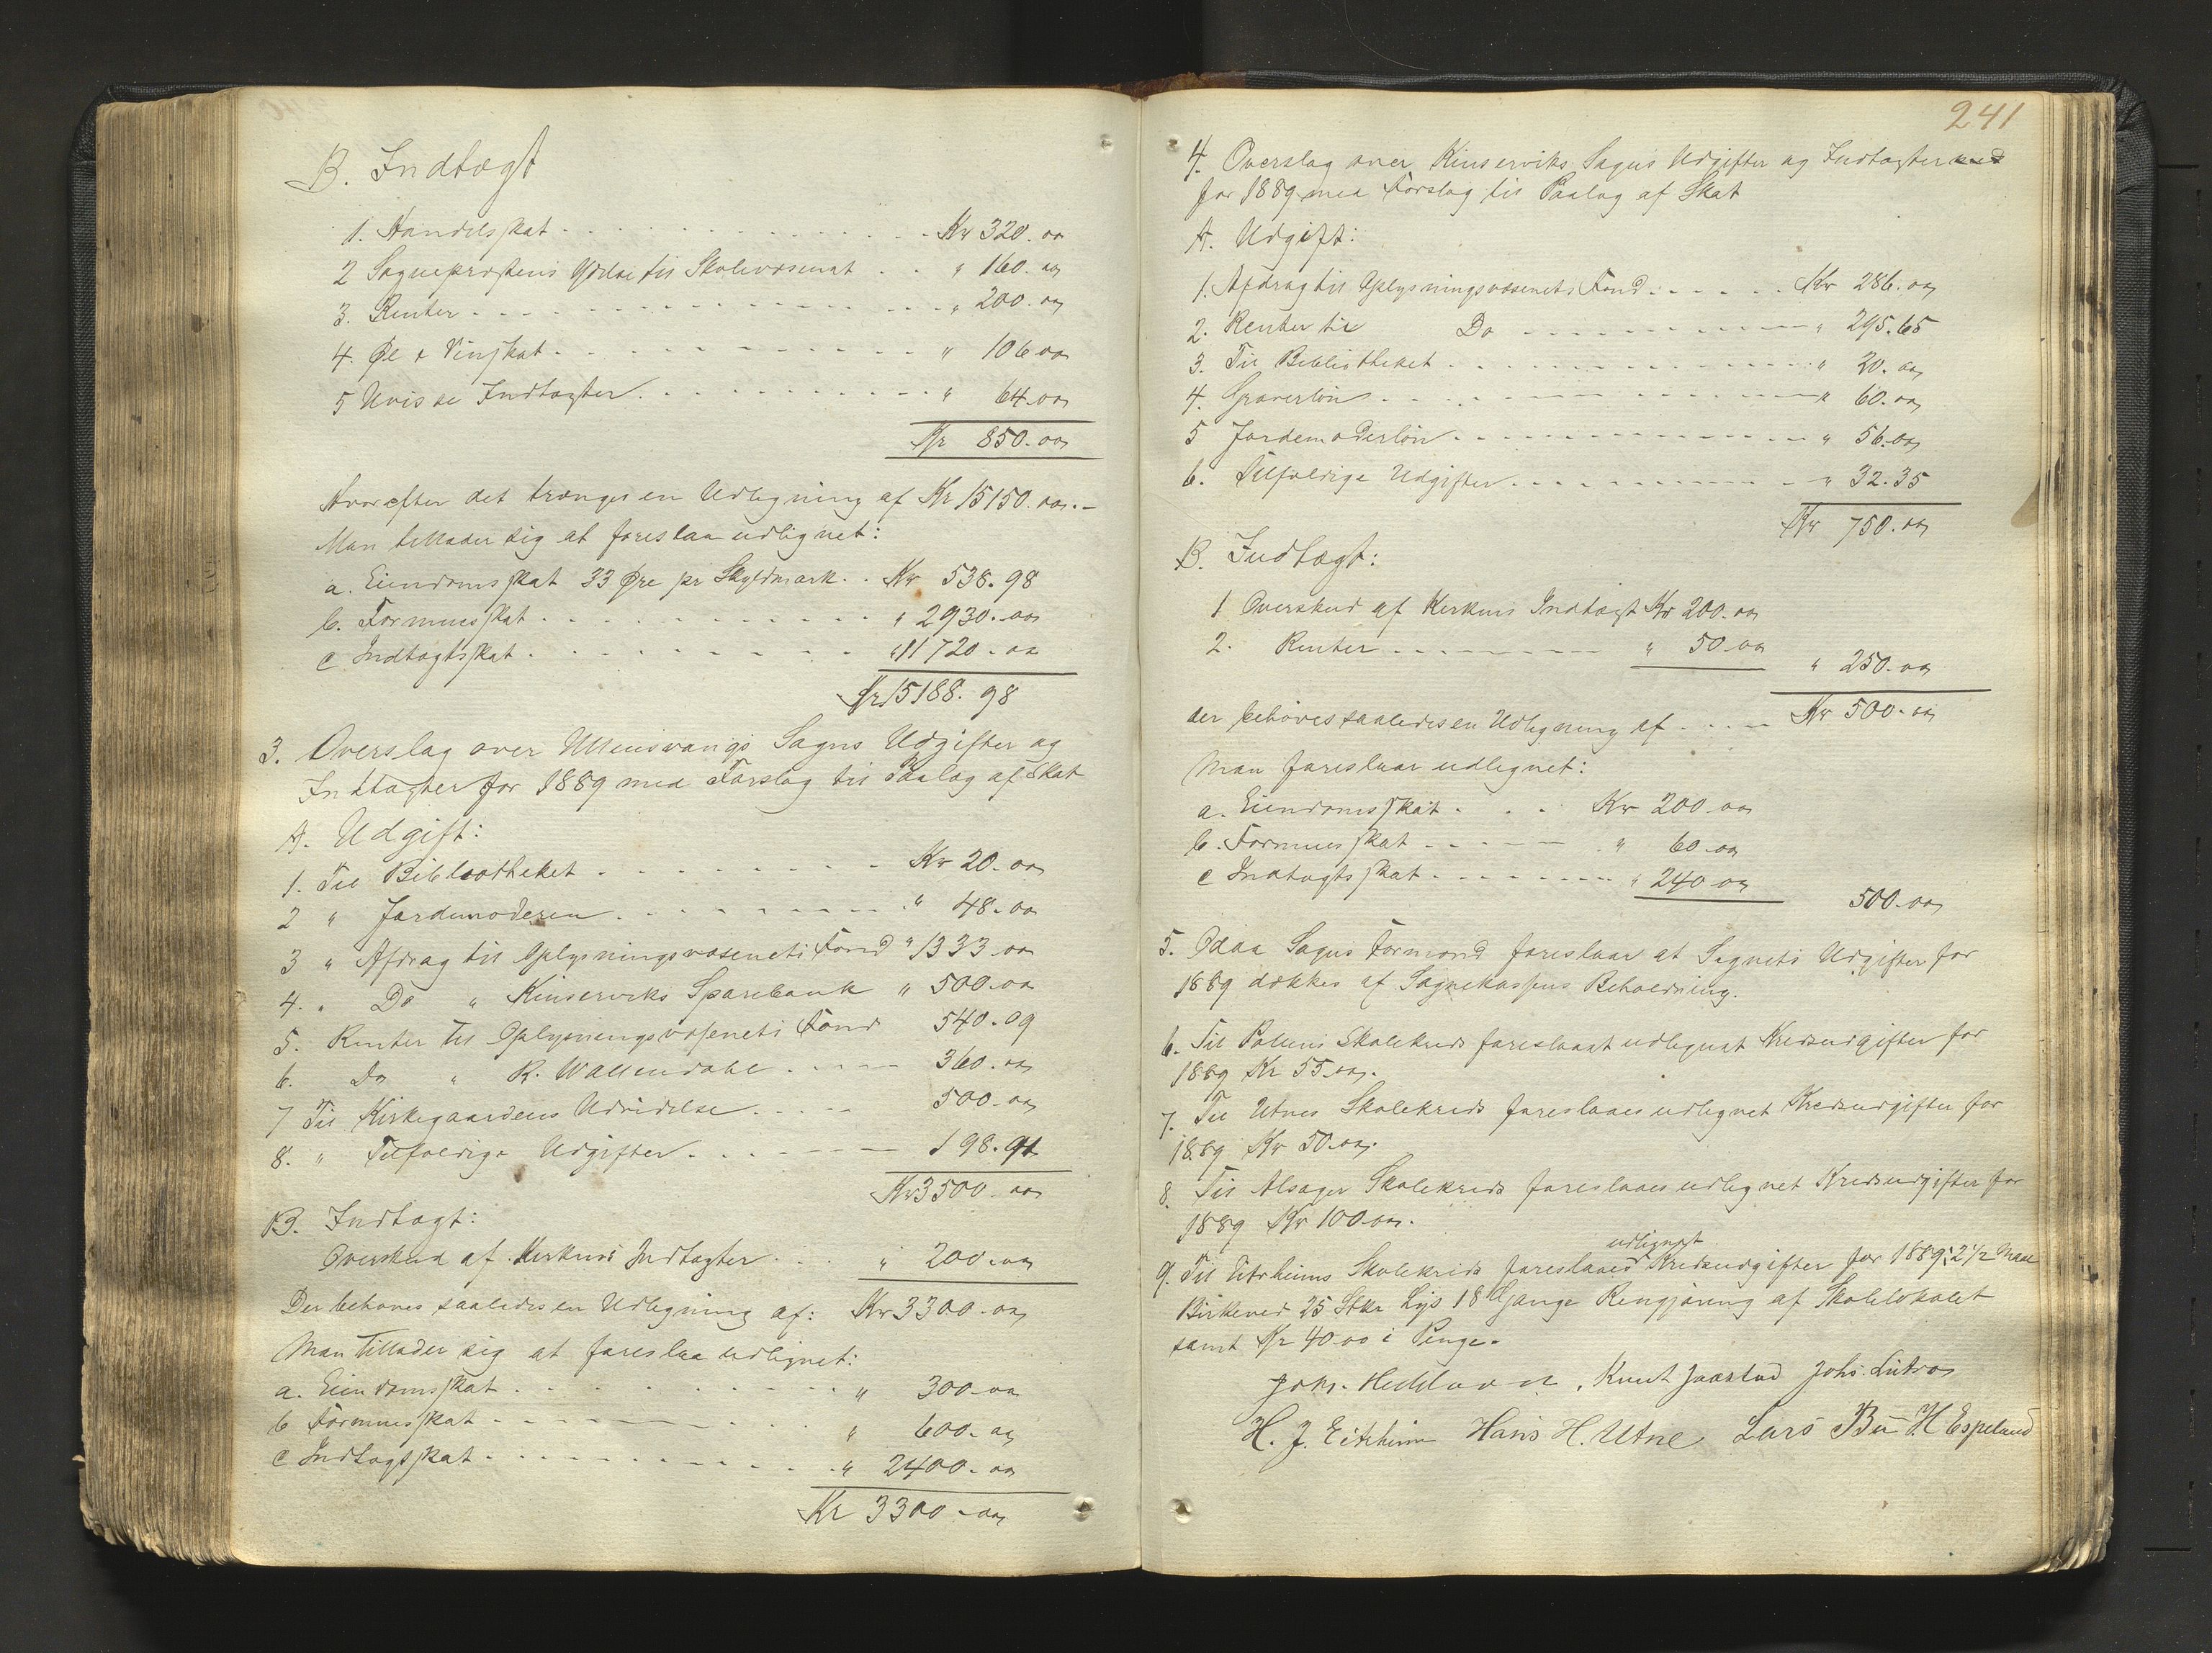 B. Indtægt
1. Handelsskat - - - - Kr 320.00
2 Sognepræstens Ydelse til Skolevæsenet . . " 160.00
3. Renter - - - - " 200.00
4. Øl & Vinskat - - - - " 106.00
5 Uvisse Indtægter - - - - " 64.00
Kr 850.00
Hvorefter det trænges en Udligning af Kr 15150.00.-
Man tillader sig at foreslaa udlignet:
a. Eiendomsskat 33 Øre pr Skyldmark . . Kr 538.98
b. Formuesskat - - - - " 2930.00
c Indtægtsskat - - - - " 11720.00
Kr 15188.98
3. Overslag over Ullensvangs Sogns Udgifter og
Indtægter for 1889 med Forslag til Paalæg af Skat
A. Udgift:
1. Til Bibliotheket - - - - Kr 20.00
2 " Jordemoderen - - - - " 48.00
3 " Afdrag til Oplysningsvæsenets Fond " 1333.00
4. " Do " Kinserviks Sparebank " 500.00
5. Renter til Oplysningsvæsenets Fond 540.09
6. Do " R. Wallendahl - - - - 360.00
7 Til Kirkegaardens Udvidelse - - - - 500.00
8. " Tilfældige Udgifter - - - - 198.91
Kr 3500.00
B. Indtægt:
Overskud af Kirkens Indtægter . . . " 200.00
Der behøves saaledes en Udligning af: Kr 3300.00
Man tillader sig at foreslaa udlignet:
a. Eiendomsskat - - - - " 300.00
b Formuesskat - - - - " 600.00
c Indtægtsskat - - - - " 2400.00
Kr 3300.00
241
4. Overslag over Kinserviks Sogns Udgifter og Indtægter med
for 1889 med Forslag til Paalæg af Skat
A. Udgift:
1. Afdrag til Oplysningsvæsenets Fond - - - - Kr 286.00
2. Renter til Do - - - - " 295.65
3. Til Bibliotheket - - - - " 20.00
4. Graverløn - - - - " 60.00
5 Jordemoderløn - - - - " 56.00
6. Tilfældige Udgifter - - - - " 32.35
Kr 750.00
B. Indtægt:
1 Overskud af Kirkens Indtægt Kr 200.00
2. Renter - - - - " 50.00
" 250.00
der behøves saaledes en Udligning af - - - - Kr 500.00
Man foreslaar udlignet:
a. Eiendomsskat . . . Kr 200.00
b. Formuesskat - - - - " 60.00
c Indtægtsskat - - - - " 240.00
500.00
5. Odda Sogns Formand foreslaar at Sognets Udgifter for
1889 dækkes af Sognekassens Beholdning.
6. Til Pollens Skolekreds foreslaaet udlignet Kredsudgifter for
1889 Kr 55.00.
7. Til Utnes Skolekreds foreslaaes udlignet Kredsudgifter for
1889 Kr 50.00.
8. Til Alsager Skolekreds foreslaaes udlignet Kredsudgifter for
1889 Kr 100.00.
udlignet
9. Til Eitrheims Skolekreds foreslaaes Kredsudgifter for 1889: 2 1/2 Maal
Birkeved 25 Stkr Lys 18 Gange Rengjøring af Skolelokalet
samt Kr 40.00 i Penge.
Knut Jaastad Johs. Lutro
H. J. Eitrheim Hans H. Utne Lars Bu H Espeland